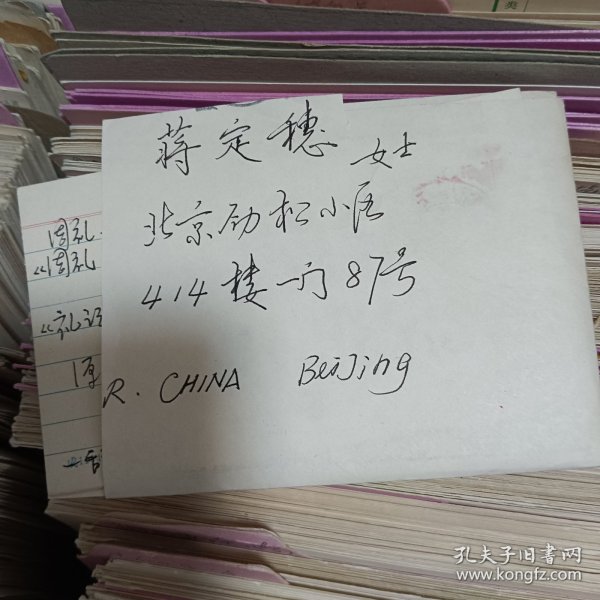 类
蒋定穗 女士
北京劲松小区
414楼一门87号
R. CHINA BeiJing
周礼
《周礼
《礼记
孔夫子旧书网
www.kongfz.com